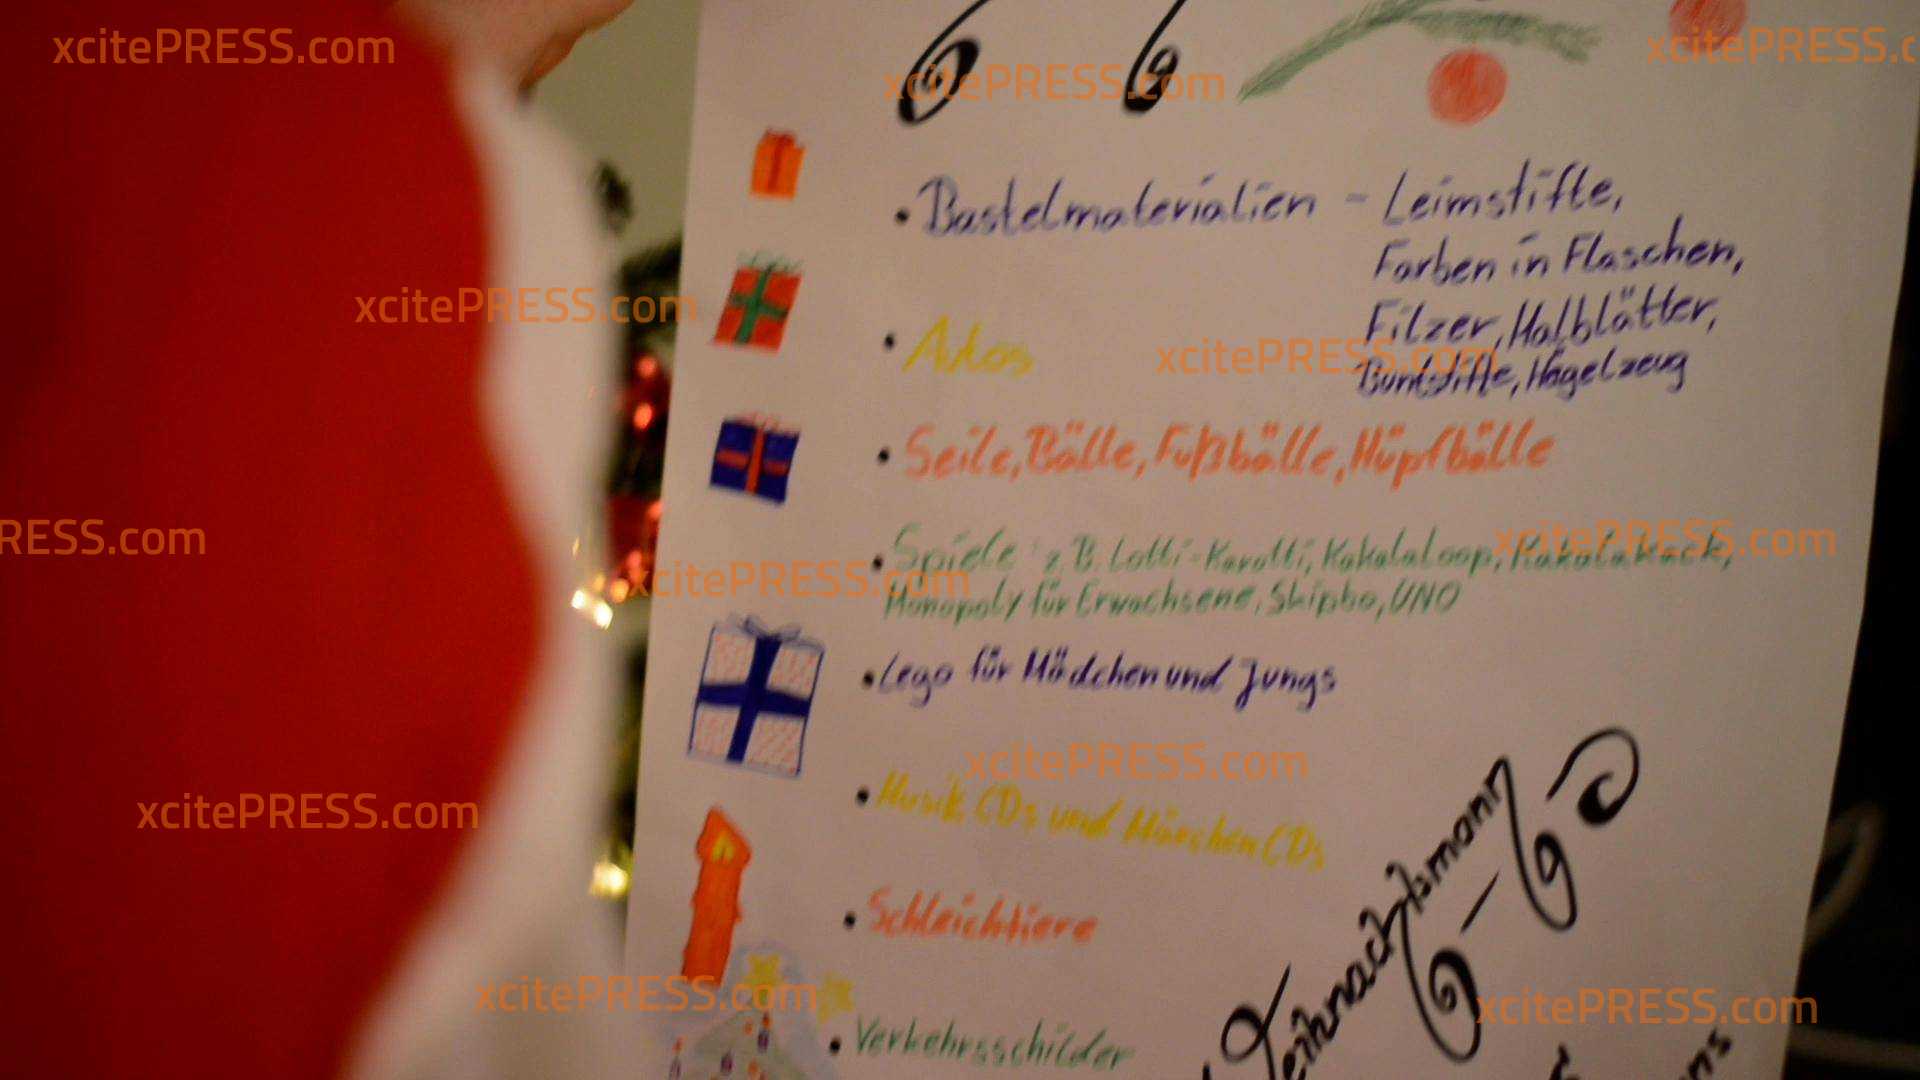 xcitePRESS.com
xcitePRESS.com
xcitePRESS.c
• Bastelmaterialien - Leimstifte,
Farben in Flaschen,
Filzer, Malblätter,
Buntstifte, Hägelzeug
• Autos
xcitePRESS.com
xcitePRESS.com
• Seile, Bälle, Fußbälle, Hüpfbälle
RESS.com
xcitePRESS.com
xcitePRESS.com
• Spiele z.B. Lotti-Karotti, Kakalaloop, Kakalakack,
Monopoly für Erwachsene, Skipbo, UNO
• Lego für Mädchen und Jungs
xcitePRESS.com
xcitePRESS.com
• Musik CDs und Märchen CDs
• Schleichtiere
Weihnachtsmann
xcitePRESS.com
xcitePRESS.com
• Verkehrsschilder